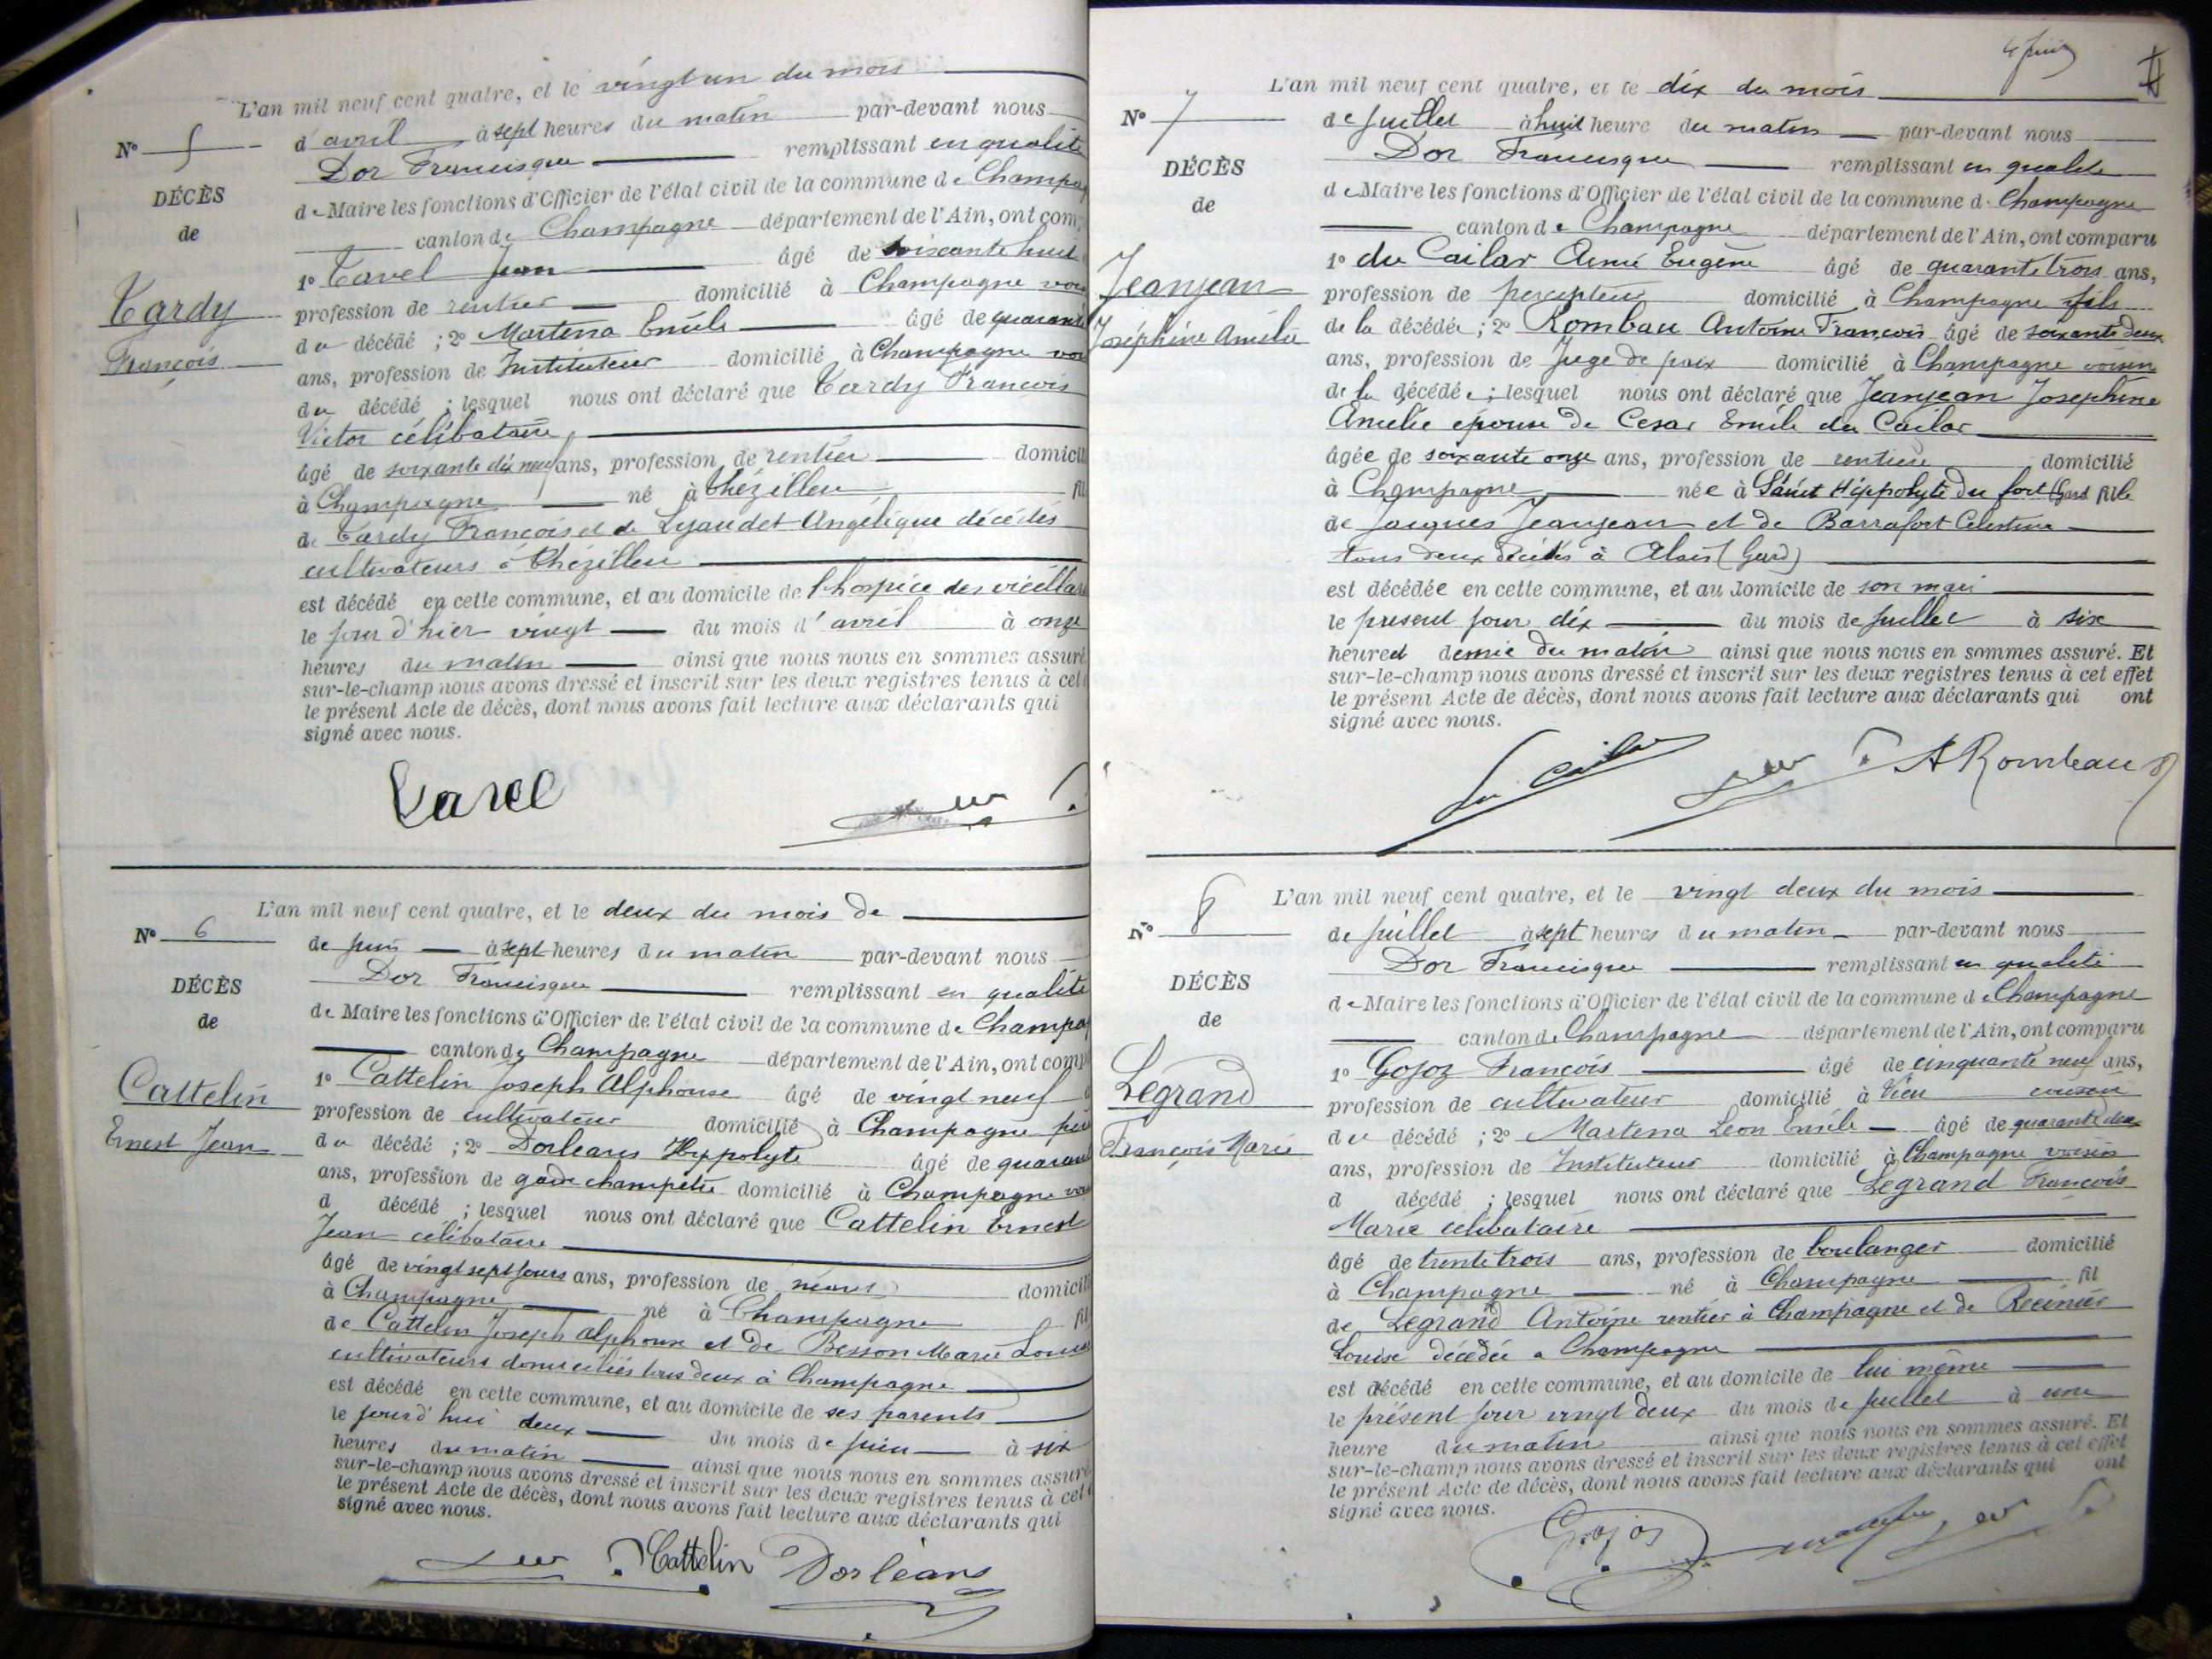 L'an mil neuf cent quatre, et le vingt un du mois
N° 5
d'avril à sept heures du matin par-devant nous
Dor Francisque remplissant en qualité
DÉCÈS
de Maire les fonctions d'Officier de l'état civil de la commune de Champag
de
canton de Champagne département de l'Ain, ont com
1° Tavel Jean âgé de soixante huit
Tardy
profession de rentier domicilié à Champagne vois
François
du décédé ; 2° Martena Emile âgé de quarante
ans, profession de Instituteur domicilié à Champagne vois
du décédé ; lesquel nous ont déclaré que Tardy François
Victor célibataire
âgé de soixante dix neuf ans, profession de rentier domicil
à Champagne né à Thézillieu fil
de Tardy François et de Lyaudet Angélique décédés
cultivateurs à Thézillieu
est décédé en cette commune, et au domicile de l'hospice des vieillard
le jour d'hier vingt du mois d'avril à onze
heures du matin ainsi que nous nous en sommes assuré
sur-le-champ nous avons dressé et inscrit sur les deux registres tenus à cet
le présent Acte de décès, dont nous avons fait lecture aux déclarants qui
signé avec nous.
Tavel
L'an mil neuf cent quatre, et le deux du mois de
N° 6
de juin à sept heures du matin par-devant nous
Dor Francisque remplissant en qualité
DÉCÈS
de Maire les fonctions d'Officier de l'état civil de la commune de Champag
de
canton de Champagne département de l'Ain, ont comp
1° Cattelin Joseph Alphonse âgé de vingt neuf
Cattelin
profession de cultivateur domicilié à Champagne pèr
Ernest Jean
du décédé ; 2° Dorleans Hyppolyte âgé de quarant
ans, profession de garde champêtre domicilié à Champagne vois
d décédé ; lesquel nous ont déclaré que Cattelin Ernest
Jean célibataire
âgé de vingt sept jours ans, profession de néant domicili
à Champagne né à Champagne fil
de Cattelin Joseph Alphonse et de Besson Marie Louis
cultivateurs domiciliés tous deux à Champagne
est décédé en cette commune, et au domicile de ses parents
le jourd'hui deux du mois de juin à six
heures du matin ainsi que nous nous en sommes assuré
sur-le-champ nous avons dressé et inscrit sur les deux registres tenus à cet
le présent Acte de décès, dont nous avons fait lecture aux déclarants qui
signé avec nous.
Cattelin Dorléans
L'an mil neuf cent quatre, et le dix du mois
N° 7
de juillet à huit heure du matin par-devant nous
Dor Francisque remplissant en qualité
DÉCÈS
de Maire les fonctions d'Officier de l'état civil de la commune d Champagne
de
canton de Champagne département de l'Ain, ont comparu
1° du Cailar Aimé Eugène âgé de quarante trois ans,
Jeanjean
profession de percepteur domicilié à Champagne fils
Joséphine Amélie
de la décédée ; 2° Rombau Antoine François âgé de soixante deux
ans, profession de Juge de paix domicilié à Champagne voisin
de la décédée ; lesquel nous ont déclaré que Jeanjean Josephine
Amélie épouse de Cesar Emile du Cailar
âgée de soixante onze ans, profession de rentière domicilié
à Champagne née à Saint Hippolyte du fort (Gard fille
de Jacques Jeanjean et de Barrafort Celestine
tous deux décédés à Alais (Gard)
est décédée en cette commune, et au domicile de son mari
le present jour dix du mois de juillet à six
heure et demie du matin ainsi que nous nous en sommes assuré. Et
sur-le-champ nous avons dressé et inscrit sur les deux registres tenus à cet effet
le présent Acte de décès, dont nous avons fait lecture aux déclarants qui ont
signé avec nous.
du Cailar A Rombeau
L'an mil neuf cent quatre, et le vingt deux du mois
N° 8
de juillet à sept heures du matin par-devant nous
Dor Francisque remplissant en qualité
DÉCÈS
de Maire les fonctions d'Officier de l'état civil de la commune de Champagne
de
canton de Champagne département de l'Ain, ont comparu
1° Gojoz François âgé de cinquante neuf ans,
Legrand
profession de cultivateur domicilié à Vieu cousin
François Marie
du décédé ; 2° Martena Leon Emile âgé de quarante deux
ans, profession de Instituteur domicilié à Champagne voisin
d décédé ; lesquel nous ont déclaré que Legrand François
Marie célibataire
âgé de trente trois ans, profession de boulanger domicilié
à Champagne né à Champagne fil
de Legrand Antoine rentier à Champagne et de
Louise décédée à Champagne
est décédé en cette commune, et au domicile de lui même
le présent jour vingt deux du mois de juillet à une
heure du matin ainsi que nous nous en sommes assuré. Et
sur-le-champ nous avons dressé et inscrit sur les deux registres tenus à cet effet
le présent Acte de décès, dont nous avons fait lecture aux déclarants qui ont
signé avec nous.
Gojoz